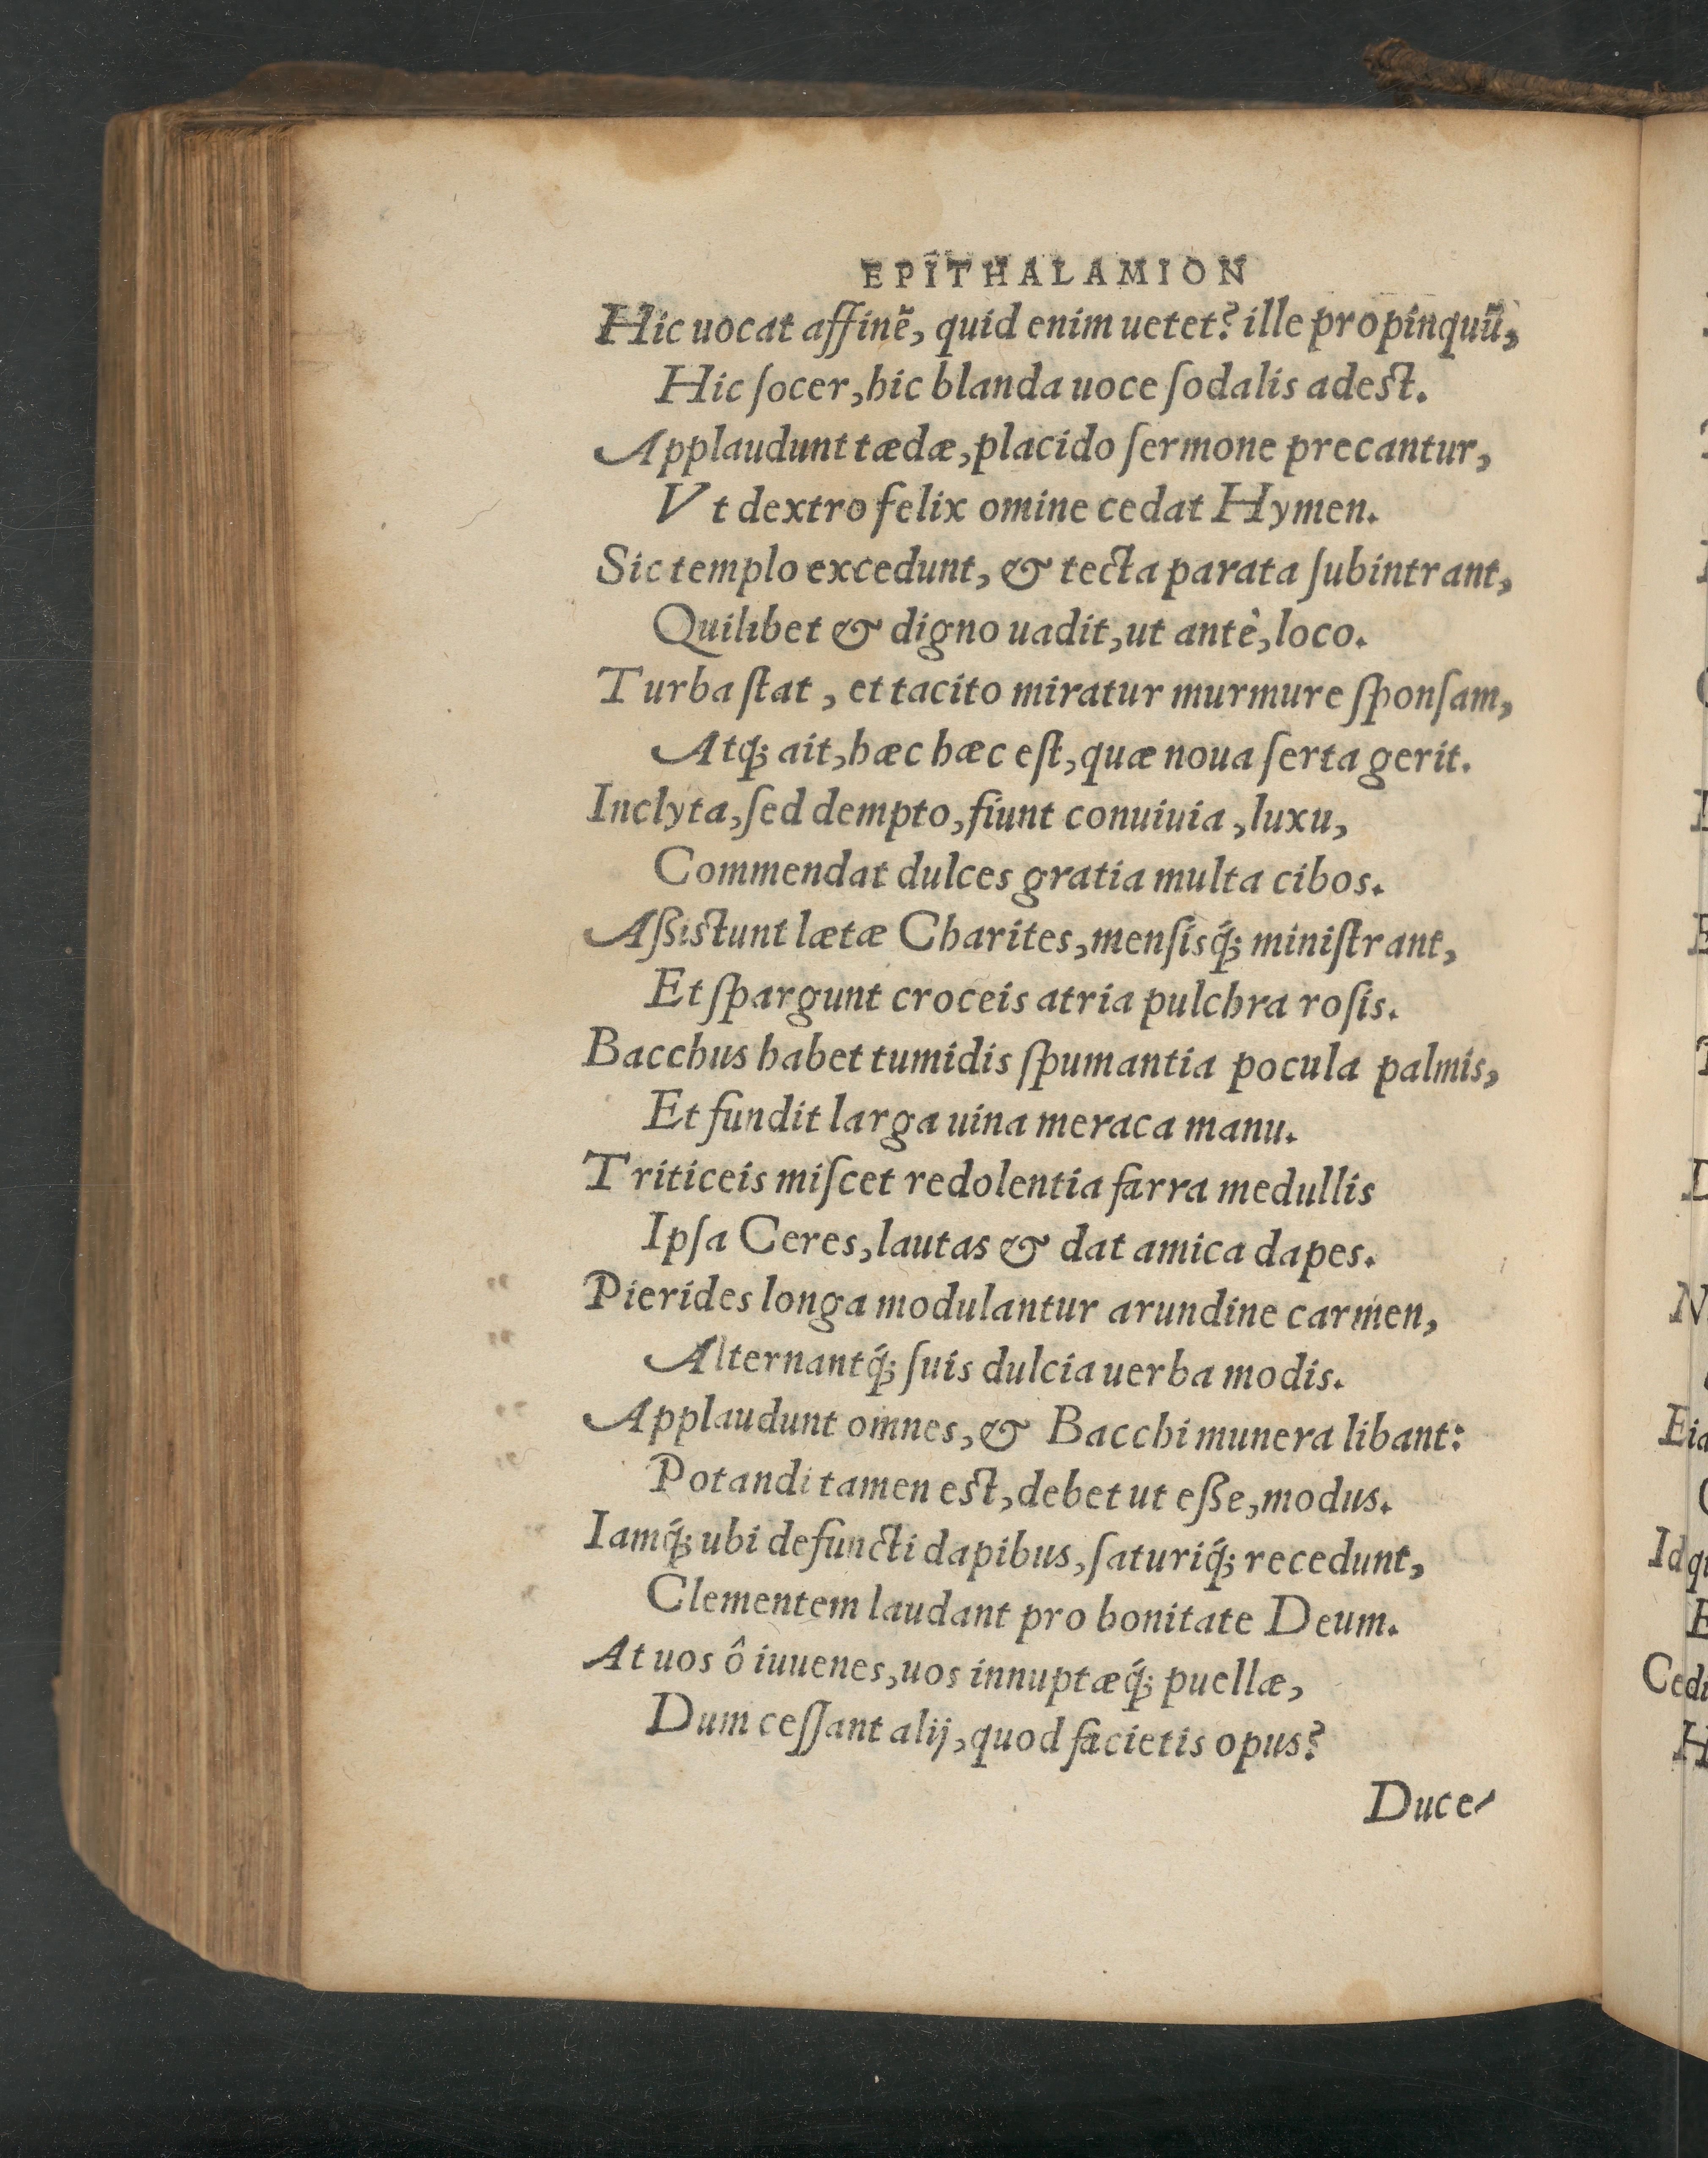 EPITHALAMION
Hic uocat affinẽ, quid enim uetet? ille propinquũ,
Hic ſocer, hic blanda uoce ſodalis adest.
Applaudunt tædæ, placido ſermone precantur,
Vt dextro felix omine cedat Hymen.
Sic templo excedunt, & tecta parata ſubintrant,
Quilibet & digno uadit, ut antè, loco.
Turba ſtat, et tacito miratur murmure ſponſam,
Atq; ait, hæc hæc eſt, quæ noua ſerta gerit.
Inclyta, ſed dempto, fiunt conuiuia, luxu,
Commendat dulces gratia multa cibos.
Aßistunt lætæ Charites, menſisq́; miniſtrant,
Et ſpargunt croceis atria pulchra roſis.
Bacchus habet tumidis ſpumantia pocula palmis,
Et fundit larga uina meraca manu.
Triticeis miſcet redolentia farra medullis
Ipſa Ceres, lautas & dat amica dapes.
Pierides longa modulantur arundine carmen,
Alternantq́; ſuis dulcia uerba modis.
Applaudunt omnes, & Bacchi munera libant:
Potandi tamen est, debet ut eße, modus.
Iamq́; ubi defuncti dapibus, ſaturiq́; recedunt,
Clementem laudant pro bonitate Deum.
At uos ô iuuenes, uos innuptæq́; puellæ,
Dum ceſſant alij, quod facietis opus?
Duce-